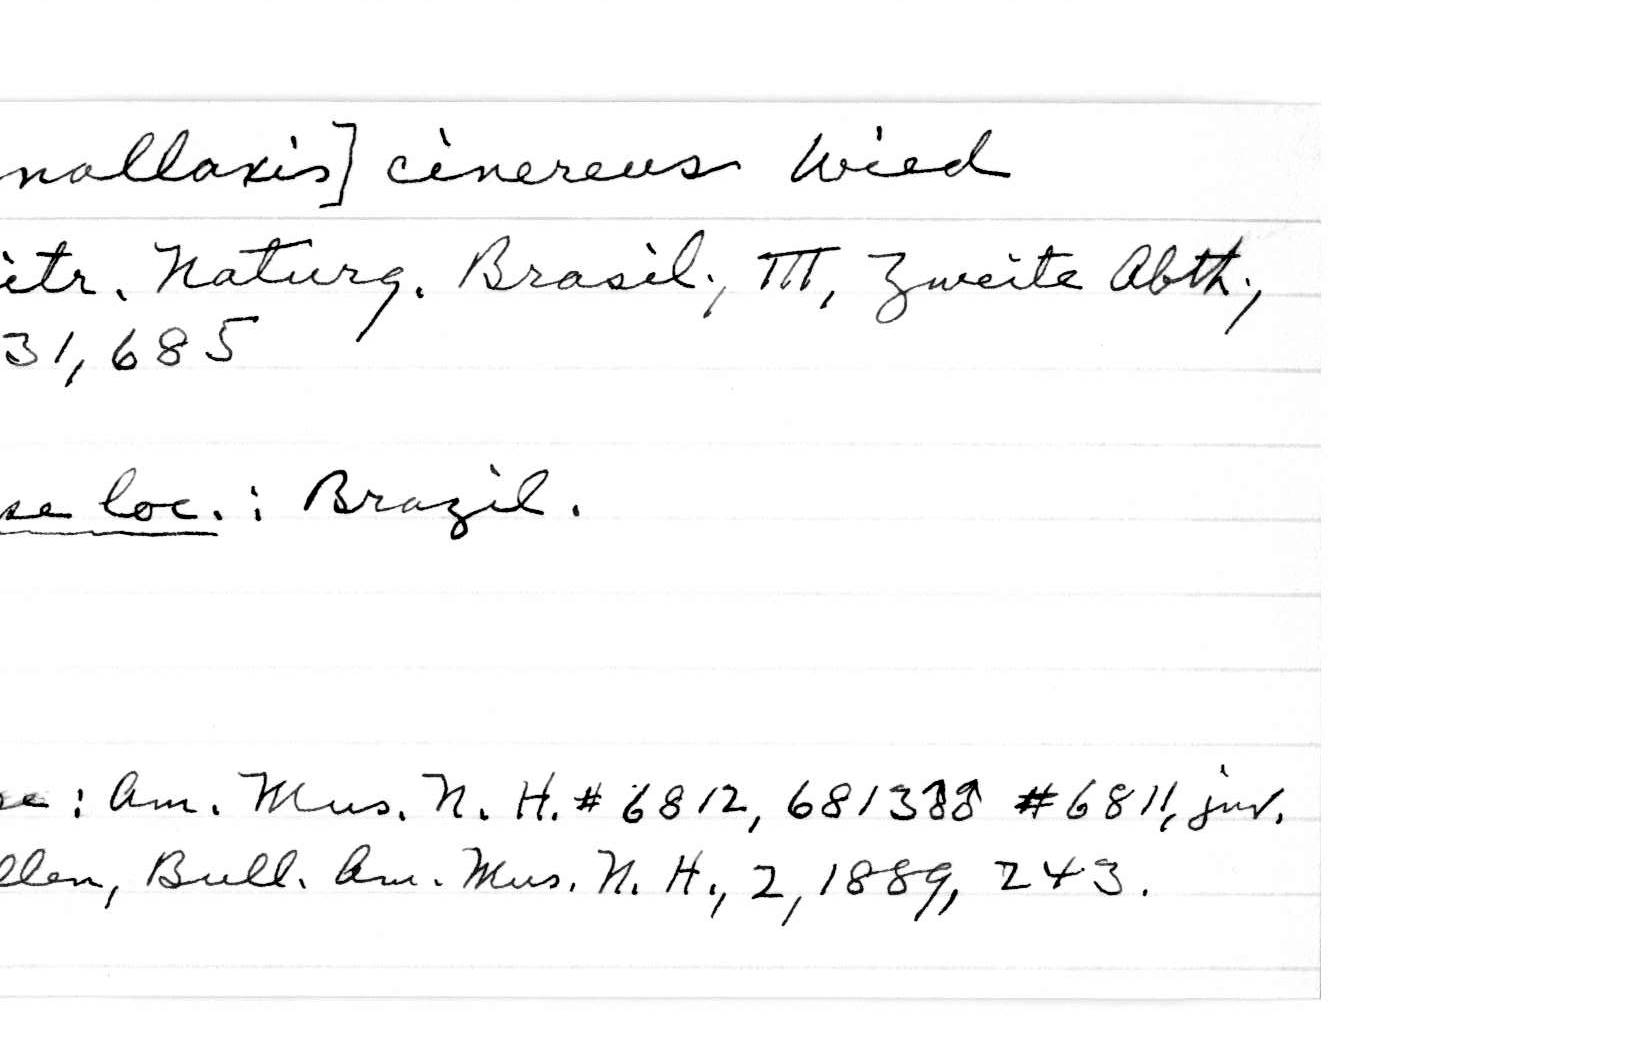 nallaxis] cinereus Wied
itr. Naturg. Brasil., III, Zweite Abth.,
31, 685
se loc.: Brazil.
pe: Am. Mus. N. H. # 6812, 6813♂♂ #6811, juv.
llen, Bull. Am. Mus. N. H., 2, 1889, 243.